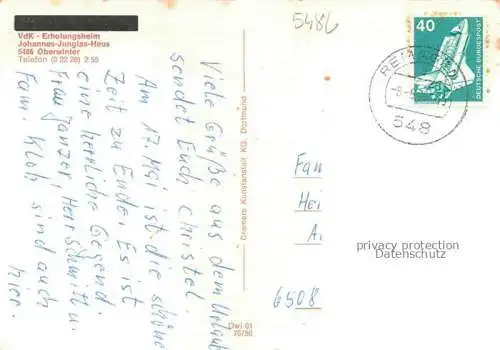 VdK - Erholungsheim
Johannes-Junglas-Haus
5486 Oberwinter
Telefon (0 22 28) 2 59
Viele Grüße aus dem Urlaub
sendet Euch Christel.
Am 17. Mai ist die schöne
Zeit zu Ende. Es ist
eine herrliche Gegend.
Frau Janzer, Herr Schmitt u.
Fam. Kloh sind auch
hier.
Cramers Kunstanstalt KG, Dortmund
Owi 01
70/90
5486
40
DEUTSCHE BUNDESPOST
REMAGEN
548
Fam
Hei
A.
6508
privacy protection
Datenschutz